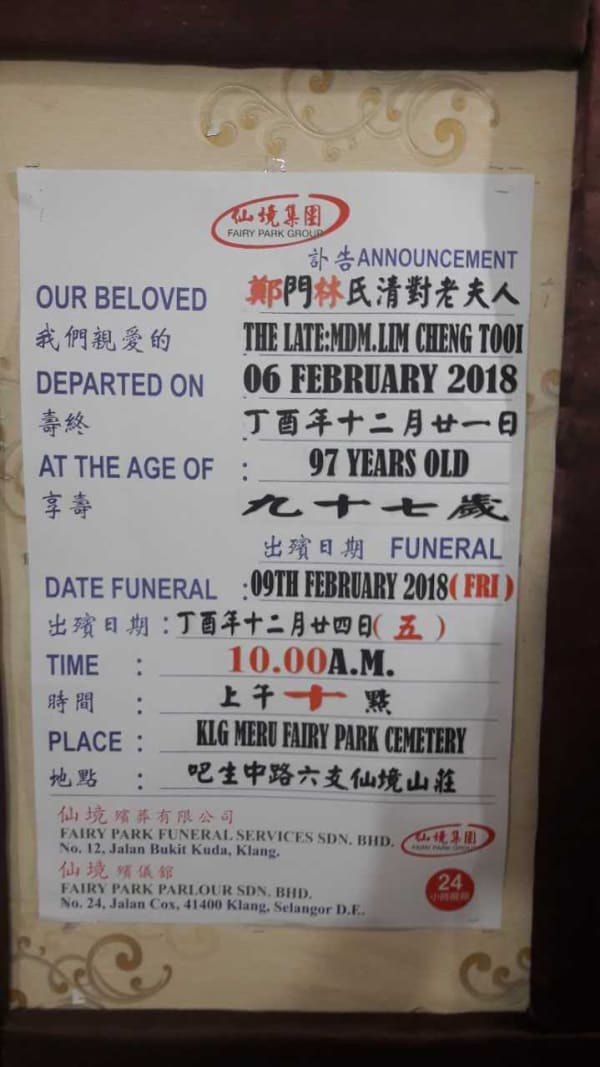 仙境集團
FAIRY PARK GROUP
訃告 ANNOUNCEMENT
OUR BELOVED 鄭門林氏清對老夫人
我們親愛的 THE LATE:MDM.LIM CHENG TOOI
DEPARTED ON 06 FEBRUARY 2018
壽終 : 丁酉年十二月廿一日
AT THE AGE OF : 97 YEARS OLD
享壽 九十七歲
出殯日期 FUNERAL
DATE FUNERAL : 09TH FEBRUARY 2018 ( FRI )
出殯日期 : 丁酉年十二月廿四日( 五 )
TIME : 10.00A.M.
時間 : 上午十點
PLACE : KLG MERU FAIRY PARK CEMETERY
地點 : 吧生中路六支仙境山莊
仙境殯葬有限公司
FAIRY PARK FUNERAL SERVICES SDN. BHD.
No. 12, Jalan Bukit Kuda, Klang.
仙境集團
FAIRY PARK GROUP
仙境殯儀館
FAIRY PARK PARLOUR SDN. BHD.
No. 24, Jalan Cox, 41400 Klang, Selangor D.E..
24